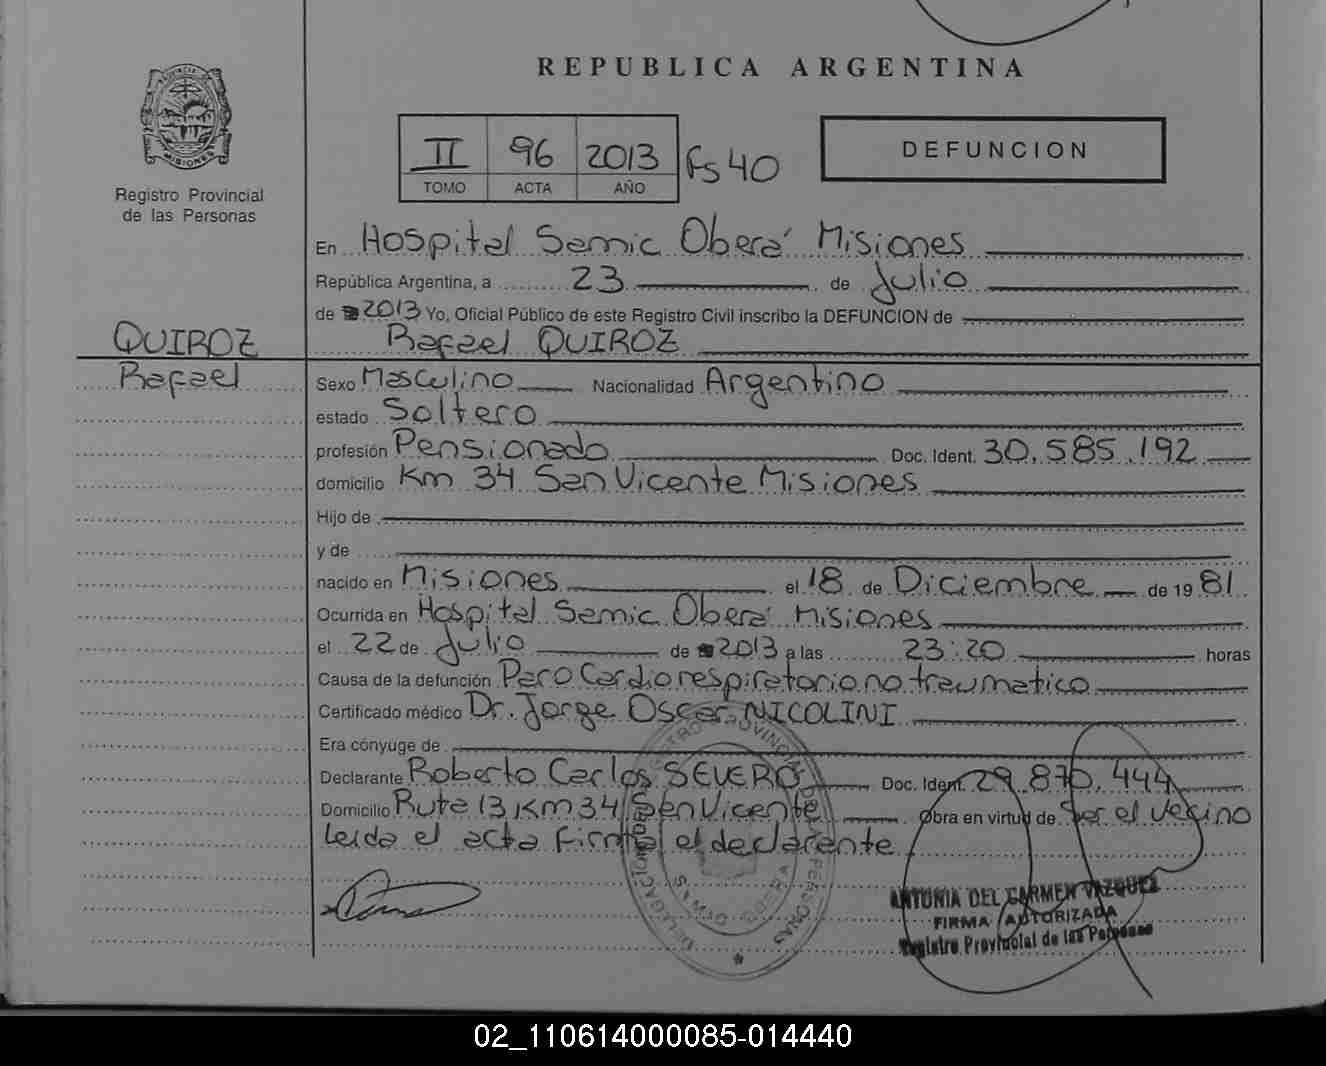 REPUBLICA ARGENTINA
PROVINCIA DE MISIONES
Registro Provincial
de las Personas
II 96 2013 Fs 40
TOMO ACTA AÑO
DEFUNCION
En Hospital Samic Oberá Misiones
República Argentina, a 23 de Julio
de 2013 Yo, Oficial Público de este Registro Civil inscribo la DEFUNCION de
QUIROZ Rafael QUIROZ
Rafael Sexo Masculino Nacionalidad Argentino
estado Soltero
profesión Pensionado Doc. Ident. 30.585.192
domicilio Km 34 San Vicente Misiones
Hijo de
y de
nacido en Misiones el 18 de Diciembre de 1981
Ocurrida en Hospital Samic Oberá Misiones
el 22 de Julio de 2013 a las 23:20 horas
Causa de la defunción Paro Cardiorespiratorio no traumatico
Certificado médico Dr. Jorge Oscar NICOLINI
Era cónyuge de
Declarante Roberto Carlos SEVERO Doc. Ident. 29.870.444
Domicilio Ruta 13 Km 34 San Vicente Obra en virtud de Ser el vecino
leida el acta firma el declarante
ANTONIA DEL CARMEN VAZQUEZ
FIRMA AUTORIZADA
Registro Provincial de las Personas
02_110614000085-014440